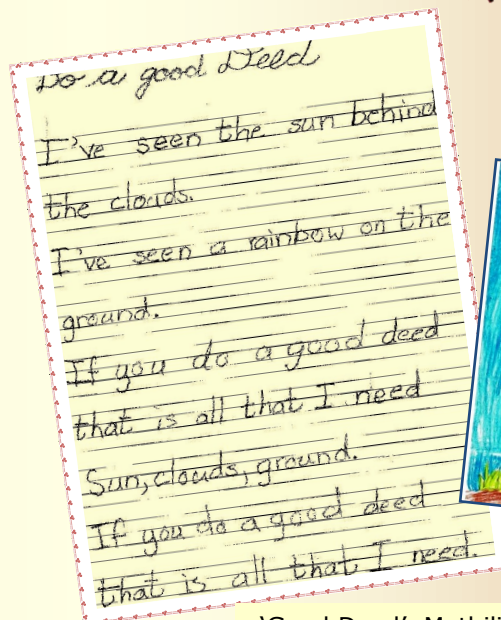 Do a good Deed
I've seen the sun behind
the clouds.
I've seen a rainbow on the
ground.
If you do a good deed
that is all that I need
Sun, clouds, ground.
If you do a good deed
that is all that I need.